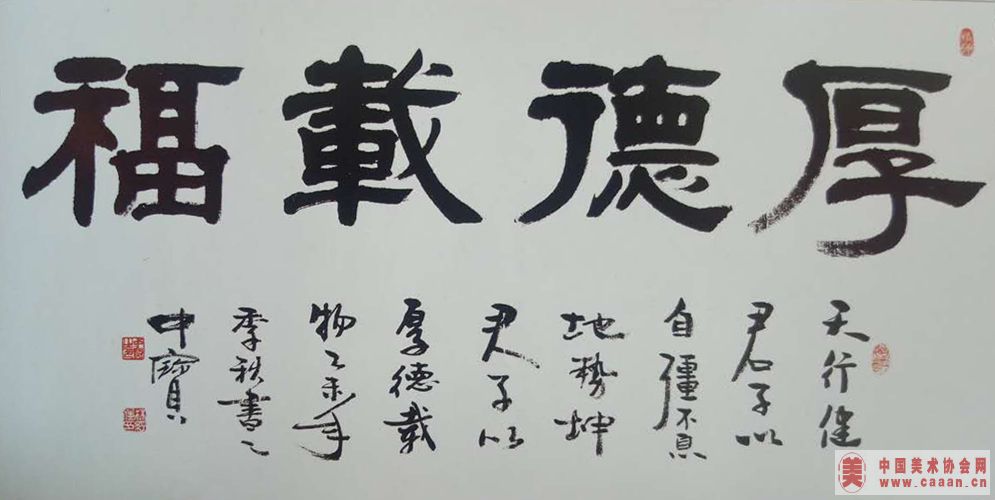 厚德載福
天行健
君子以
自彊不息
地勢坤
君子以
厚德載
物乙未年
季秋書之
中寶
美
中国美术协会网
www.caaan.cn